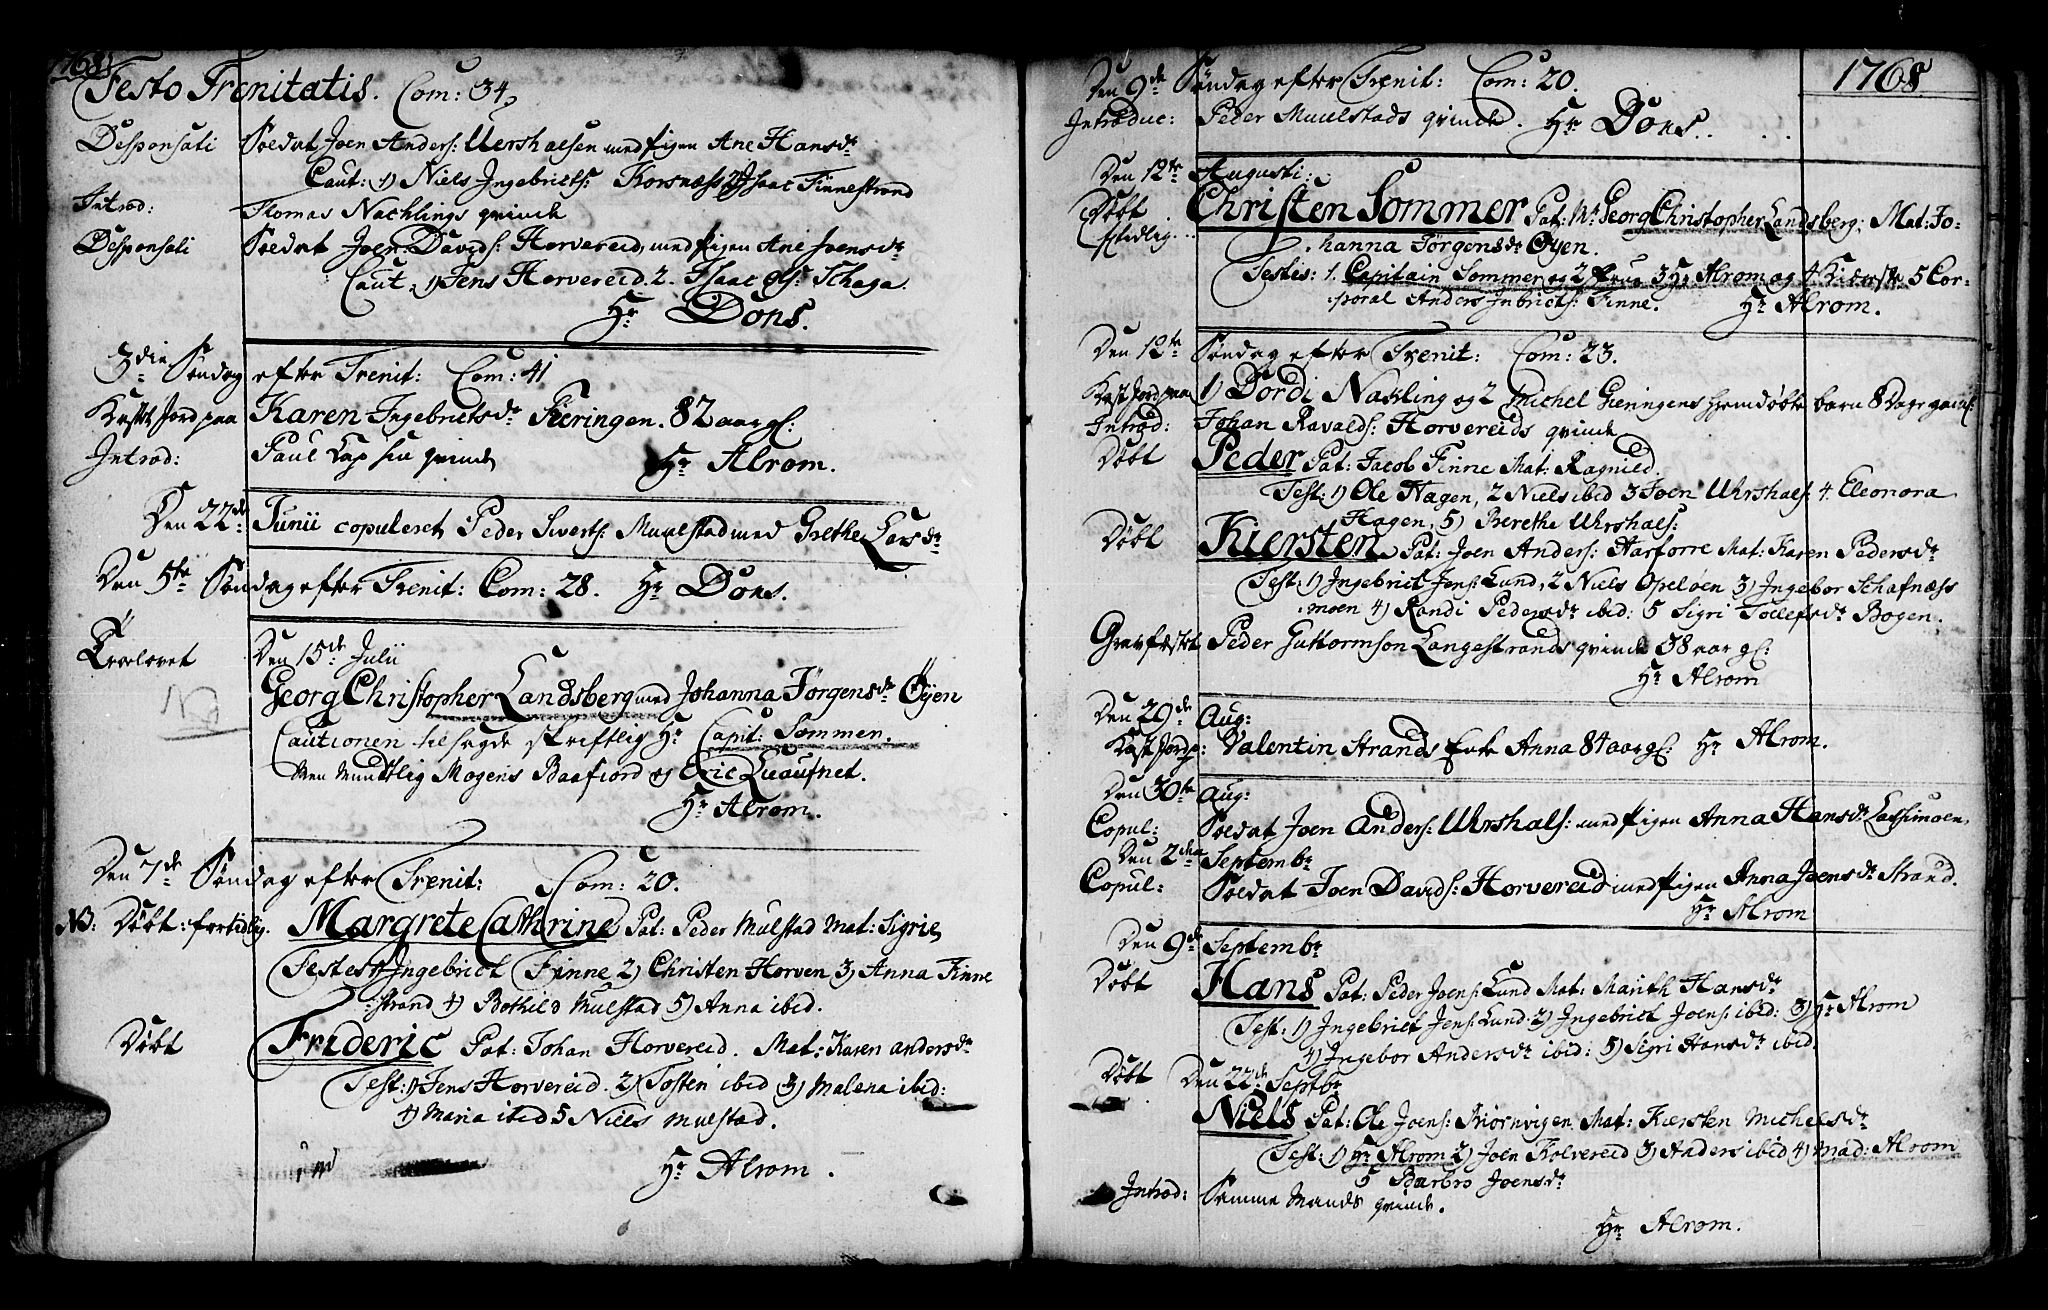 1768
Festo Trenitatis. Com: 34,
Desponsati Soldat Joen Anders: Uershalsen med pigen Ane Hansdr
Caut: 1) Niels Ingebricts: Korsnæss 2) Isaac Finnestrand
Introd: Thomas Nachlings qvinde
Desponsati Soldat Joen Davids: Horvereid, med pigen Ane Joensdr
Caut: 1) Jens Horvereid 2. Isaac Ols: Schaga.
Hr Dons.
3die Søndag efter Trenit: Com: 41
Kastet Jord paa Karen Ingebrictsdr Fieringen. 82 aar gl:
Introd: Paul qvinde Hr Alrom.
Den 22de Junii copuleret Peder Swerts: Muulstad med Grethe Larsdr
Den 5te Søndag efter Trenit: Com: 28. Hr Dons.
Troelovet Den 15de Julii
Georg Christopher Landsberg med Johanna Jørgensdr Øyen
Cautionen tilsagde skriftlig Hr Capit: Sommer.
Men Mundtlig Mogens Baafiord og Eric
Hr Alrom.
Den 7de Søndag efter Trenit: Com: 20.
NB: Døbt: fortidlig. Margrete Cathrine Pat: Peder Mulstad Mat: Sigrie,
Testes 1) Ingebrict Finne 2) Christen Horven 3) Anna Finne
strand 4) Bothild Mulstad 5) Anna ibid.
Døbt Frideric Pat: Johan Horvereid. Mat: Karen andersdr
Test: 1) Jens Horvereid. 2) Tosten ibid 3) Malena ibid:
4) Maria ibid 5 Niels Mulstad.
Hr Alrom.
1768
Den 9de Søndag efter Trenit: Com: 20.
Introduc: Peder Muulstads qvinde. Hr Dons.
Den 12te Augusti:
Døbt Christen Sommer Pat: Mr Georg Christopher Landsberg, Mat: Jo-
hanna Jørgensdr Øyen.
Testes: 1. Capitain Sommer og 2 Frue 3 Hr Alrom og 4 Kiereste 5 Cor-
poral Anders Inbricts: Finne. Hr Alrom.
Den 12te Søndag efter Trenit: Com: 23.
Kast Jord paa 1) Dordi Nachling og 2 Michel Gieringens hiemdøbte barn 8 Dage
Introd: Johan Ravalds: Horvereids qvinde
Døbt Peder Pat: Jacob Finne Mat: Ragnild.
Test: 1) Ole Hagen, 2 Niels ibid 3 Joen Uhrshals: 4. Eleonora
Hagen, 5) Berethe Uhrshals:
Døbt Kiersten Pat: Joen Anders: Aarforre Mat: Karen Pedersdr
Test: 1) Ingebrict Jens: Lund, 2 Niels Opeløen 3) Ingebor Schafnæss
moen 4) Randi Pedersdr ibid: 5 Sigri Tollefsdr Bogen.
Gravfæstet Peder Guttormson Langestrands qvinde 38 aar gl:
Hr Alrom
Den 29de Aug:
Kast Jord p: Valentin Strands Enke Anna 84 aar gl: Hr Alrom.
Den 30te Aug:
Copul: Soldat Joen Anders: Uhrshals: med pigen Anna Hansdr
Den 2den Septembr
Copul: Soldat Joen Davids: Horvereid med pigen Anna Joensdr Strand.
Hr Alrom
Den 9de Septembr
Døbt Hans Pat: Peder Joens: Lund Mat: Marith Hansdr
Test: 1) Ingebrict Jens: Lund: 2) Ingebrict Joens: ibid: 3) Hr Alrom
4) Ingebor Andersdr ibid: 5) Sigri Hansdr ibid.
Døbt Den 22de Septbr
Niels Pat: Ole Joens: Biørnvigen. Mat: Kiersten Michelsdr
Test: 1) Hr Alrom 2) Joen Holvereid 3) Anders ibid 4) Mad: Alrom
5 Barbro Joensdr
Introd: Samme Mands qvinde.
Hr Alrom.